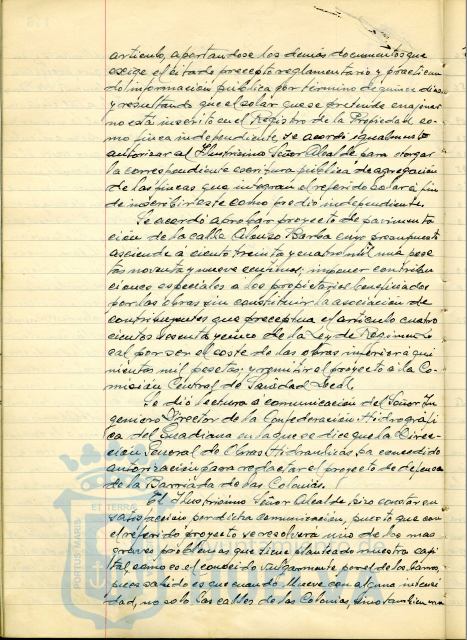 articulo, aportandose los demás documentos que
exige el citado precepto reglamentario y practican
do información pública por término de quince dias
y resultando que el solar que se pretende enajenar
no está inscrito en el Registro de la Propiedad co-
mo finca independiente, se acordó igualmente
autorizar al Ilustrisimo Señor Alcalde para otorgar
la correspondiente escritura pública de agregación
de las fincas que integran el referido solar á fin
de inscribir este como predio independiente.
Se acordó aprobar proyecto de pavimenta
ción de la calle Alonso Barba cuyo presupuesto
asciende a ciento treinta y cuatro mil una pese
tas noventa y nueve centimos; imponer contribu
ciones especiales á los propietarios beneficiados
por las obras sin constituir la asociación de
contribuyentes que preceptua el articulo cuatro
cientos sesenta y cinco de la Ley de Régimen Lo
cal por ser el coste de las obras inferior a qui
nientas mil pesetas; y remitir el proyecto á la Co-
misión Central de Sanidad Local.
Se dió lectura á comunicación del Señor In
geniero Director de la Confederación Hidrográfi
ca del Guadiana en la que se dice que la Direc-
ción General de Obras Hidraulicas ha concedido
autorización para redactar el proyecto de defensa
de la Barriada de las Colonias.
El Ilustrisimo Señor Alcalde hizo constar su
satisfacción por dicha comunicación, puesto que con
el referido proyecto se resolverá uno de los mas
graves problemas que tiene planteado nuestra capi
tal, como es el conocido vulgarmente por el de los barros,
pues sabido es que cuando llueve con alguna intensi
dad, no solo las calles de las Colonias, sino tambien
PORTUS MARIS ET TERRÆ